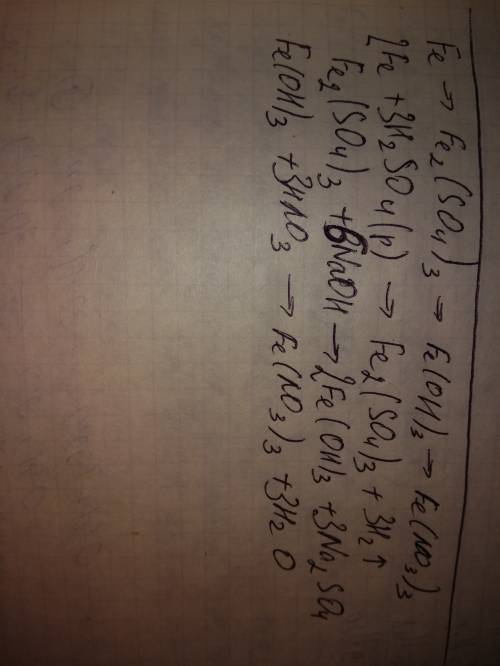 Fe → Fe₂(SO₄)₃ → Fe(OH)₃ → Fe(NO₃)₃
2Fe + 3H₂SO₄(р) → Fe₂(SO₄)₃ + 3H₂↑
Fe₂(SO₄)₃ + 6NaOH → 2Fe(OH)₃ + 3Na₂SO₄
Fe(OH)₃ + 3HNO₃ → Fe(NO₃)₃ + 3H₂O